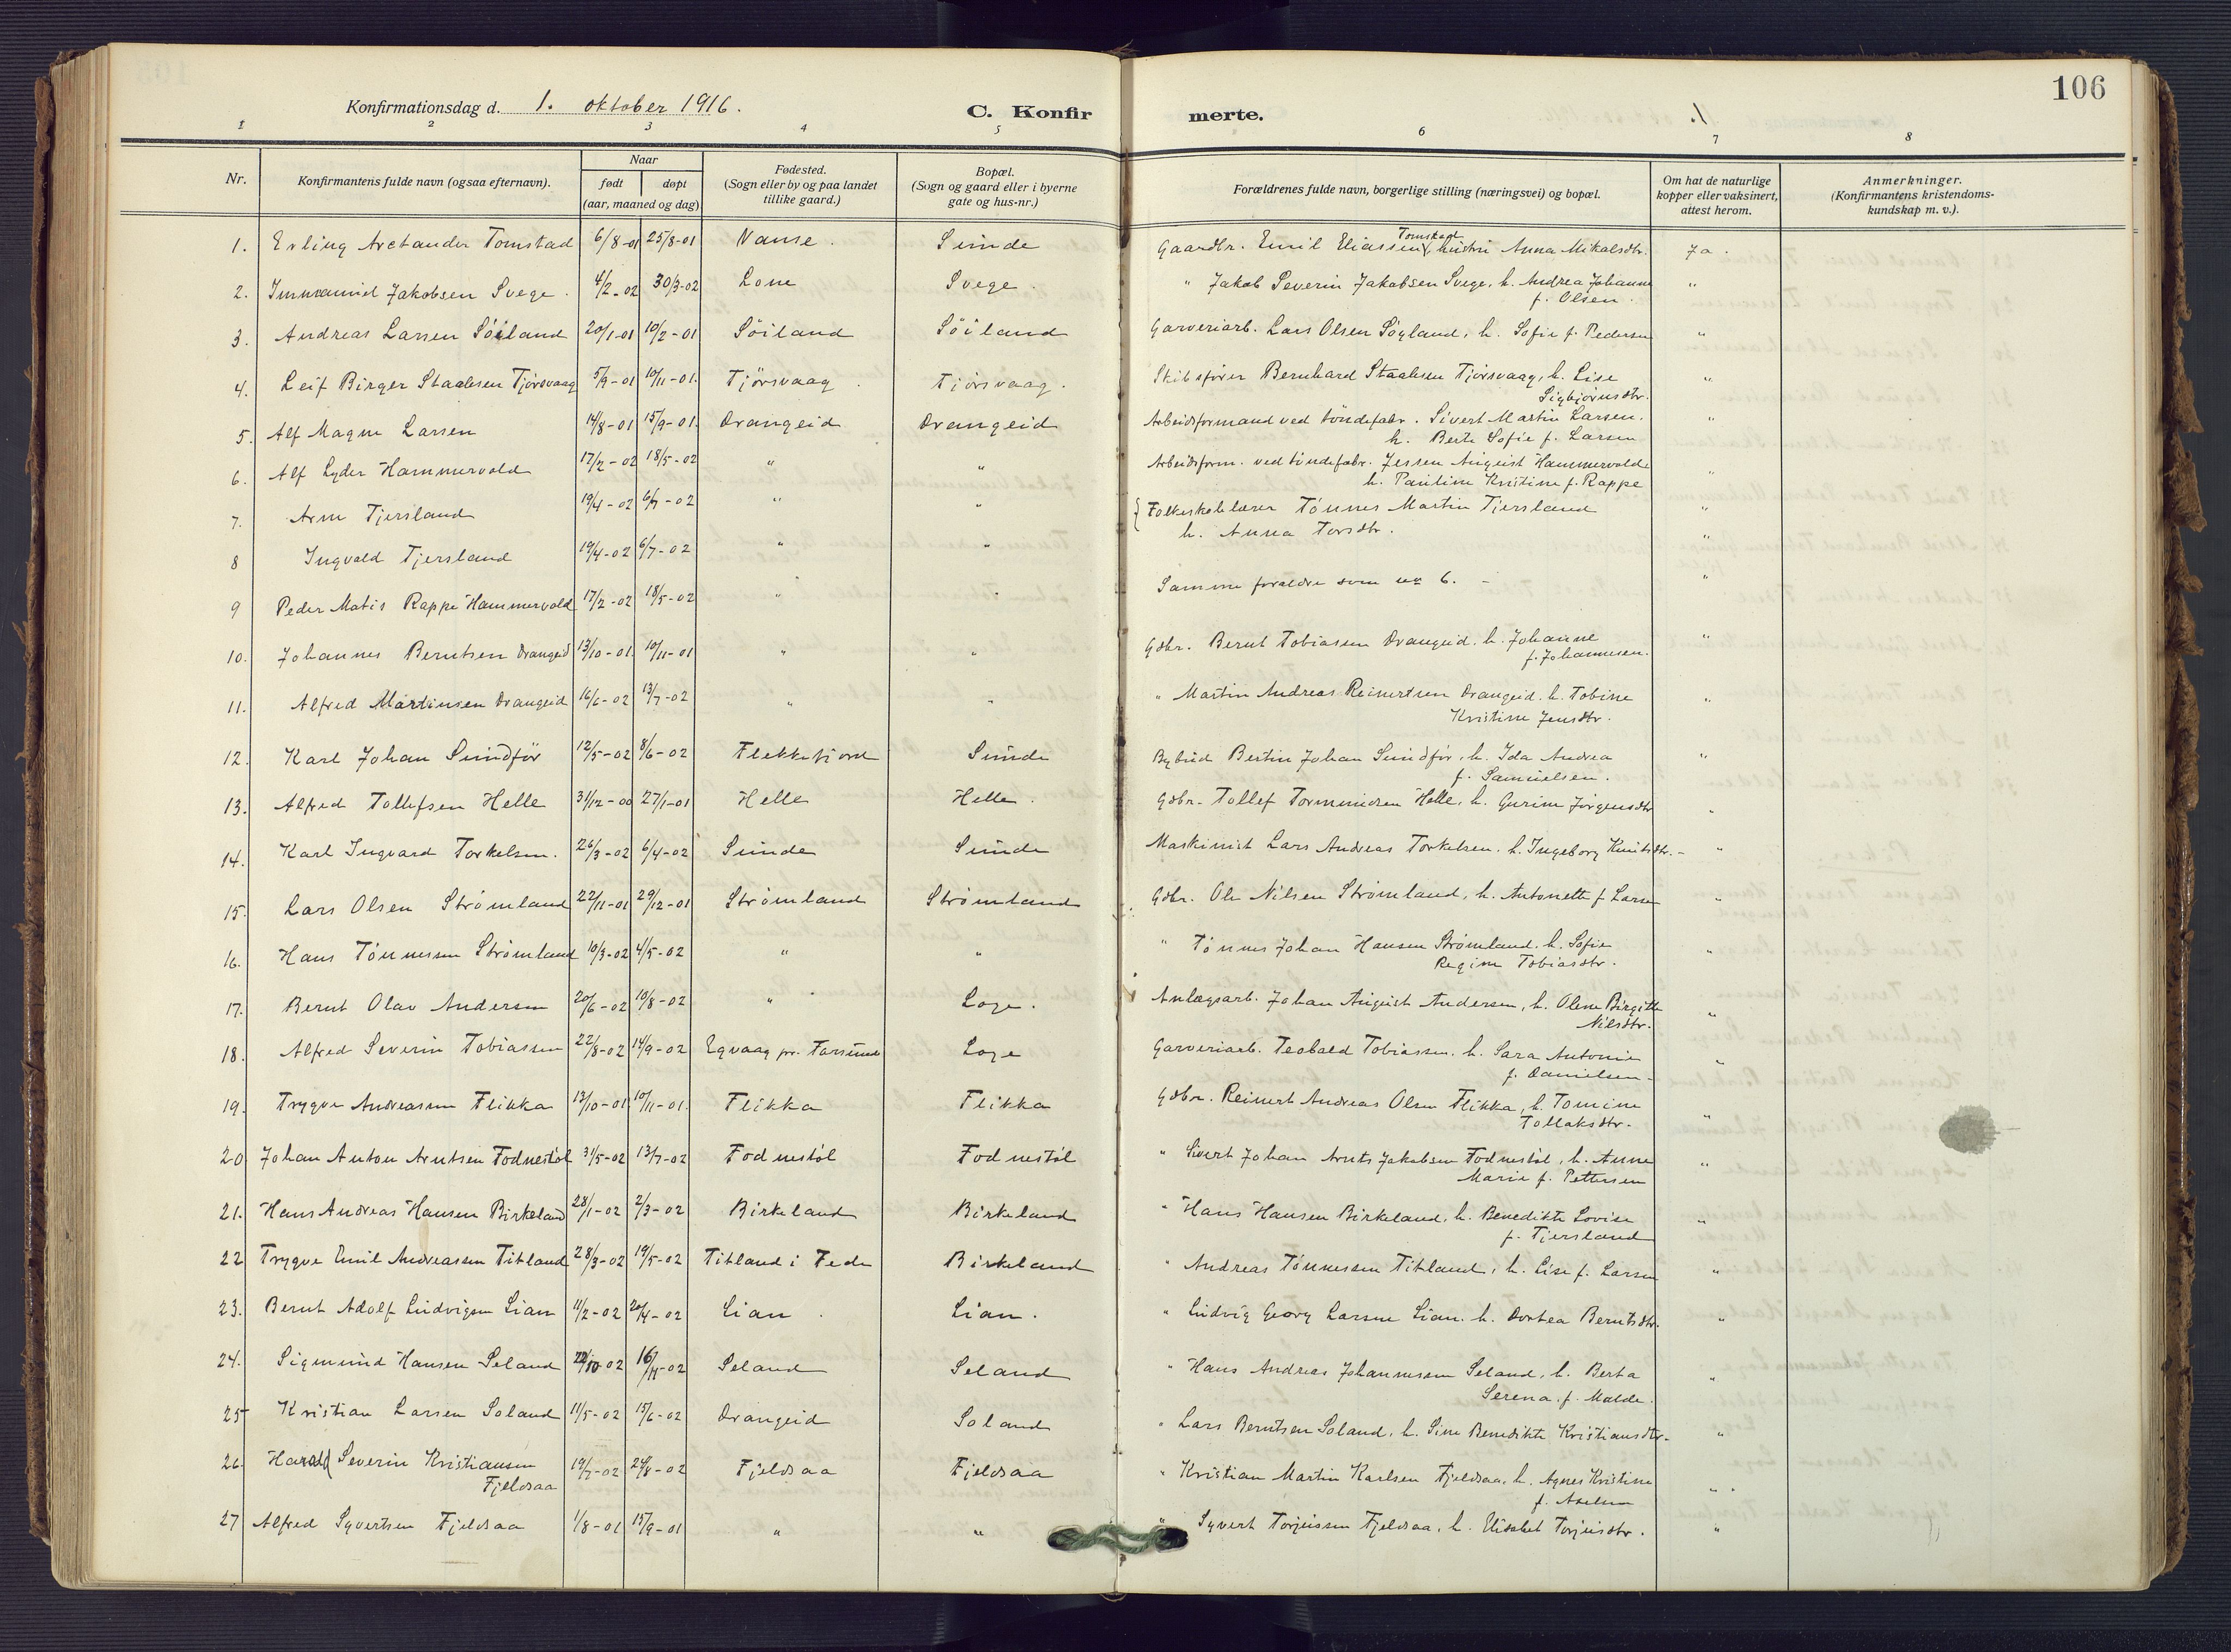 106
Konfirmationsdag d. 1. oktober 1916. C. Konfirmerte.
1 2 3 4 5 6 7 8
Nr. Konfirmantens fulde navn (ogsaa efternavn). Naar født døpt (aar, maaned og dag) Fødested. (Sogn eller by og paa landet tillike gaard.) Bopæl. (Sogn og gaard eller i byerne gate og hus-nr.) Forældrenes fulde navn, borgerlige stilling (næringsvei) og bopæl. Om hat de naturlige kopper eller vaksinert, attest herom. Anmerkninger. (Konfirmantens kristendoms-kundskap m. v.).
1. Erling Arctander Tomstad 6/8-01 25/8-01 Vanse. Sunde Gaardbr. Emil Eliassen Tomstad, hustru Anna Mikalsdtr. Ja.
2. Immanuel Jakobsen Svege. 4/2-02 30/3-02 Lone Svege. " Jakob Severin Jakobsen Svege, h. Andrea Johanne "
f. Olsen.
3. Andreas Larsen Söiland 20/1-01 10/2-01 Söiland Söiland Garveriarb. Lars Olsen Söyland, h. Sofie f. Pedersen "
4. Leif Birger Staalesen Tjörsvaag 5/9-01 10/11-01. Tjörsvaag. Tjörsvaag. Skibsfører Bernhard Staalesen Tjörsvaag, h. Lise "
Sigbjörnsdtr.
5. Alf Magne Larsen 14/8-01 15/9-01. Drangeid Drangeid Arbeidsformand ved töndefabr. Sivert Martin Larsen. "
h. Berte Sofie f. Larsen
6. Alf Lyder Hammervold 17/2-02 18/5-02 " " Arbeidsform. ved töndefabr. Jessen August Hammervolde "
h. Pauline Kristine f. Rappe
7. Arne Tjersland 19/4-02 6/7-02 " " { Folkeskolelærer Tönnes Martin Tjersland "
h. Anna Torsdtr.
8 Ingvald Tjersland 19/4-02 6/7-02 " " "
9 Peder Matis Rappe Hammervold 17/2-02 18/5-02 " " Samme foraldre som nr 6. - "
10. Johannes Berntsen Drangeid 13/10-01. 10/11-01 " " Gdbr. Bernt Tobiassen Drangeid. h. Johanne "
f. Johannesen.
11. Alfred Martinsen Drangeid 16/6-02 13/7-02 " " " Martin Andreas Reinertsen Drangeid. h. Tobine "
Kristine Jensdtr.
12. Karl Johan Sundför 12/5-02 8/6-02 Flekkefjord Sunde Bybud Bertin Johan Sundför, h. Ida Andrea "
f. Samuelsen.
13. Alfred Tollefsen Helle 31/12-00 27/1-01 Helle Helle. Gdbr. Tollef Tormundsen Helle, h. Gurine Jörgensdtr "
14. Karl Ingvard Torkelsen. 26/3-02 6/4-02 Sunde Sunde Maskinist Lars Andreas Torkelsen. h. Ingeborg Knutsdtr. - "
15. Lars Olsen Strömland 22/11-01 29/12-01 Strömland Strömland Gdbr. Ole Nilsen Strömland, h. Antonette f Larsen "
16. Hans Tönnesen Strömland 10/3-02 4/5-02 " " " Tönnes Johan Hansen Strömland. h. Sofie "
Regine Tobiasdtr.
17. Bernt Olav Andersen 20/6-02 10/8-02 " Loge. Anlægsarb. Johan August Andersen, h. Olene Birgitte "
Nilsdtr.
18. Alfred Severin Tobiassen 22/8-02 14/9-02 Egvaag pr. Farsund Loge Garveriarb. Teobald Tobiassen. h. Sara Antonie "
f. Danielsen
19. Trygve Andreassen Flikka 13/10-01 10/11-01. Flikka Flikka Gdbr. Reinert Andreas Olsen Flikka, h. Tomine "
Tollaksdtr.
20 Johan Anton Arntsen Fodnestöl 31/5-02 13/7-02 Fodnestöl Fodnestöl " Sivert Johan Arnts Jakobsen Fodnestöl, h. Anne "
Marie f. Pettersen
21. Hans Andreas Hansen Birkeland 28/1-02 2/3-02 Birkeland Birkeland " Hans Hansen Birkeland, h. Benedikte Lovise "
f. Tjersland
22 Trygve Emil Andreassen Titland 28/3-02 19/5-02 Titland i Fede Birkeland " Andreas Tönnessen Titland, h. Lise f. Larsen "
23. Bernt Adolf Ludvigsen Lian 11/2-02 20/4-02 Lian. Lian. " Ludvig Georg Larsen Lian. h. Dortea Berntsdtr. "
24. Sigmund Hansen Seland 22/10-02 16/11-02 Seland Seland " Hans Andreas Johannesen Seland, h. Berta "
Serena. f. Malde.
25 Kristian Larsen Soland 11/5-02 15/6-02 Drangeid Soland " Lars Berntsen Soland, h. Sine Benedikte Kristiansdtr. "
26. Harald Severin Kristiansen 19/7-02 24/8-02 Fjeldsaa Fjeldsaa " Kristian Martin Karlsen Fjeldsaa, h. Agnes Kristine "
Fjeldsaa f. Axelsen
27 Alfred Syvertsen Fjeldsaa 1/8-01 15/9-01 " " " Syvert Torjussen Fjeldsaa, h. Elisabet Torjusdtr. "